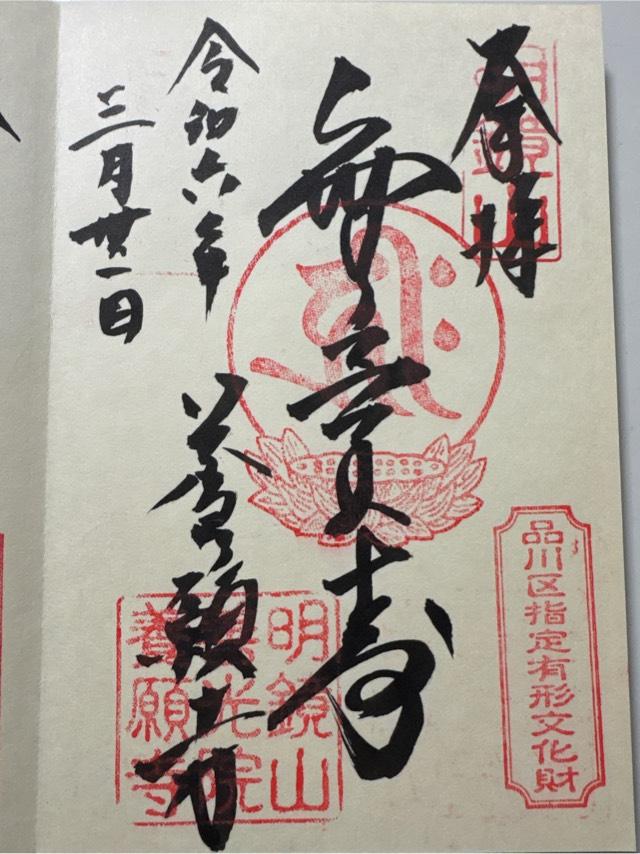 奉拝
明鏡山
無量寿
品川区指定有形文化財
令和六年
三月廿一日
養願寺
明鏡山
善光院
養願寺